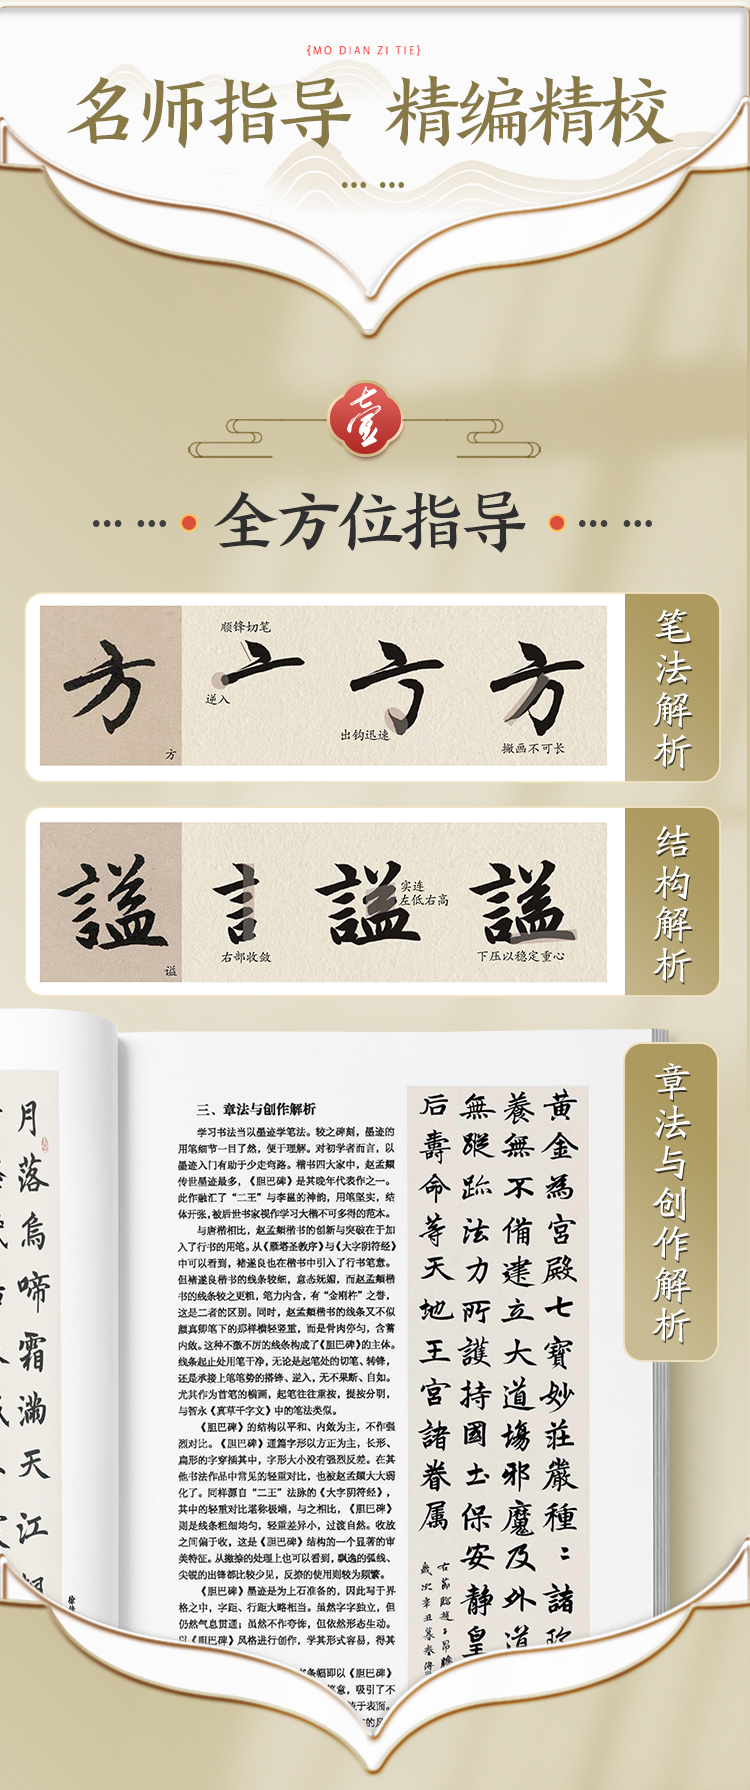 {MO DIAN ZI TIE}
名师指导 精编精校
壹
全方位指导
笔法解析
方
方
顺锋切笔
逆入
出钩迅速
方
撇画不可长
结构解析
謚
谥
右部收敛
謚
实连
左低右高
謚
下压以稳定重心
章法与创作解析
月落烏啼霜滿天江
三、章法与创作解析
学习书法当以墨迹学笔法。较之碑刻，墨迹的
用笔细节一目了然，便于理解。对初学者而言，以
墨迹入门有助于少走弯路。楷书四大家中，赵孟頫
传世墨迹最多，《胆巴碑》是其晚年代表作之一。
此作融汇了“二王”与李邕的神韵，用笔坚实，结
体开张，被后世书家视作学习大楷不可多得的范本。
与唐楷相比，赵孟頫楷书的创新与突破在于加
入了行书的用笔。从《雁塔圣教序》与《大字阴符经》
中可以看到，褚遂良也在楷书中引入了行书笔意。
但褚遂良楷书的线条较细，意态妩媚，而赵孟頫楷
书的线条较之更粗，笔力内含，有“金刚杵”之誉，
这是二者的区别。同时，赵孟頫楷书的线条又不似
颜真卿笔下的那样横轻竖重，而是骨肉停匀，含蓄
内敛。这种不激不厉的线条构成了《胆巴碑》的主体。
线条起止处用笔干净，无论是起笔处的切笔、转锋，
还是承接上笔笔势的搭锋、逆入，无不果断、自如。
尤其作为首笔的横画，起笔往往重按，提按分明，
与智永《真草千字文》中的笔法类似。
《胆巴碑》的结构以平和、内敛为主，不作强
烈对比。《胆巴碑》通篇字形以方正为主，长形、
扁形的字穿插其中，字形大小没有强烈反差。在其
他书法作品中常见的轻重对比，也被赵孟頫大大弱
化了。同样源自“二王”法脉的《大字阴符经》，
其中的轻重对比堪称极端，与之相比，《胆巴碑》
则是线条粗细均匀，轻重差异小，过渡自然。收放
之间偏于收，这是《胆巴碑》结构的一个显著的审
美特征。从撇捺的处理上也可以看到，飘逸的弧线、
尖锐的出锋都比较少见，反捺的使用则较为频繁。
《胆巴碑》墨迹是为上石准备的，因此写于界
格之中，字距、行距大略相当。虽然字字独立，但
仍然气息贯通；虽然不作夸饰，但依然形态生动。
以《胆巴碑》风格进行创作，学其形式容易，得其
条幅即以《胆巴碑》
笔意，吸引了不
于表面。
黄金為宮殿七寶妙莊嚴種二諸
養無不備建立大道場邪魔及外道
無蹤跡法力所護持國土保安靜皇
后壽命等天地王宮諸眷属